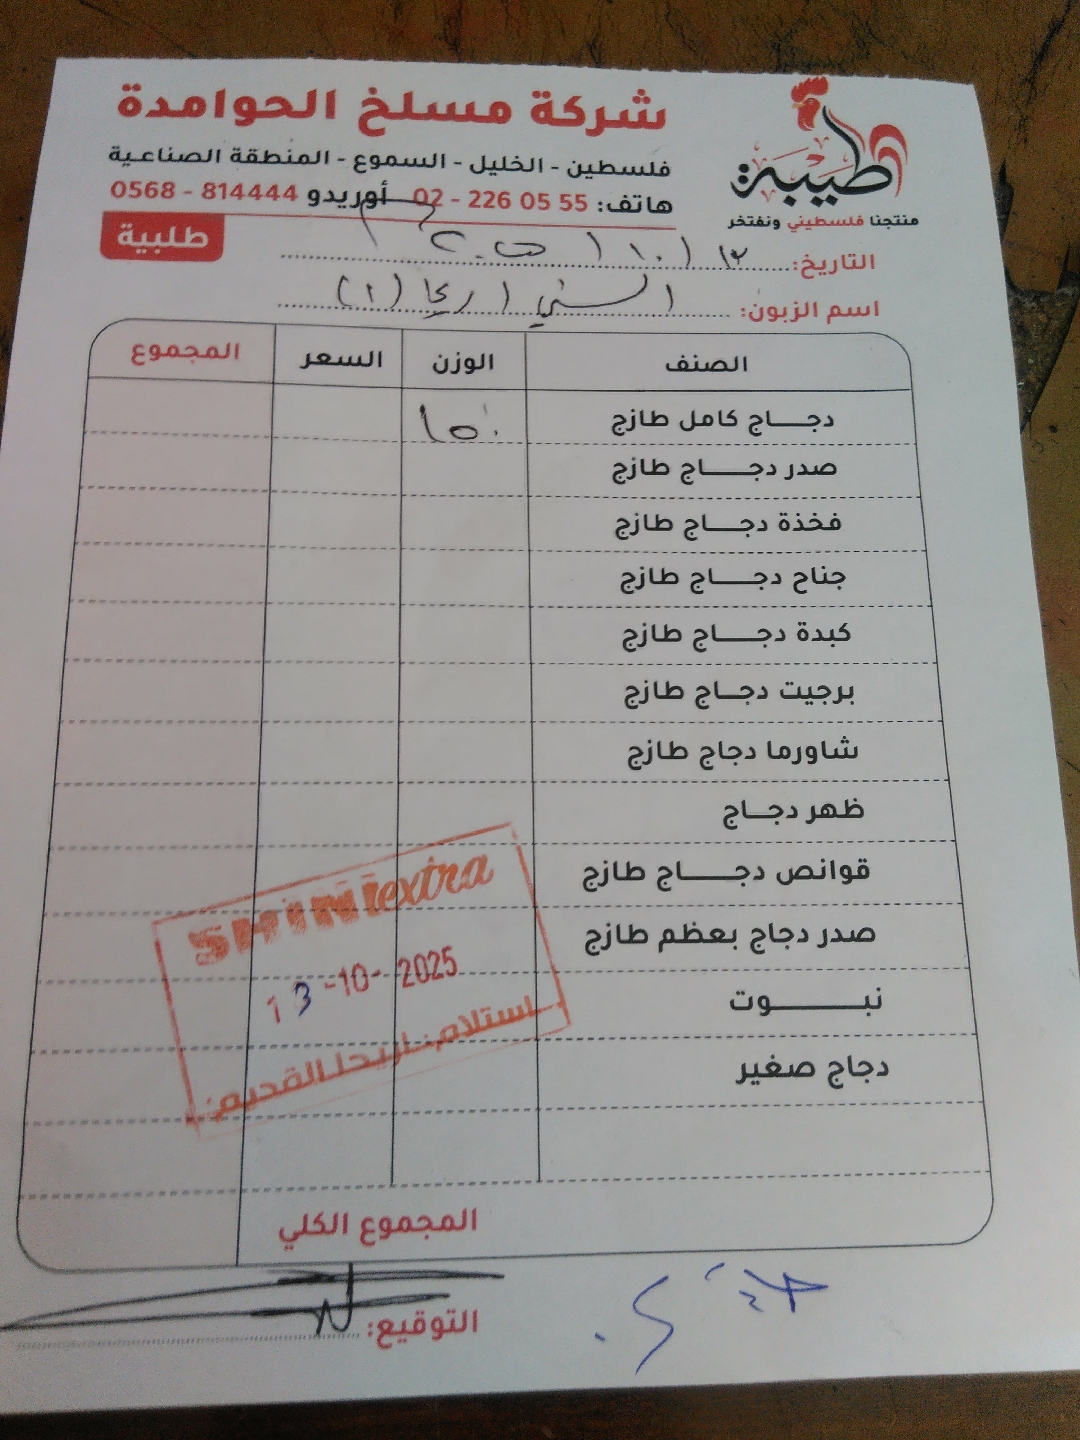 طيبة
منتجنا فلسطيني ونفتخر
شركة مسلخ الحوامدة
فلسطين - الخليل - السموع - المنطقة الصناعية
هاتف: 55 05 226 - 02 أوريدو 814444 - 0568
طلبية
التاريخ: ١٣ / ١٠ /
اسم الزبون: الشني اريحا (١)
الصنف الوزن السعر المجموع
دجاج كامل طازج ١٥٠
صدر دجاج طازج
فخذة دجاج طازج
جناح دجاج طازج
كبدة دجاج طازج
برجيت دجاج طازج
شاورما دجاج طازج
ظهر دجاج
قوانص دجاج طازج
صدر دجاج بعظم طازج
نبوت
دجاج صغير
SHINI extra
13-10-2025
استلام: اريحا القديم
المجموع الكلي
التوقيع: